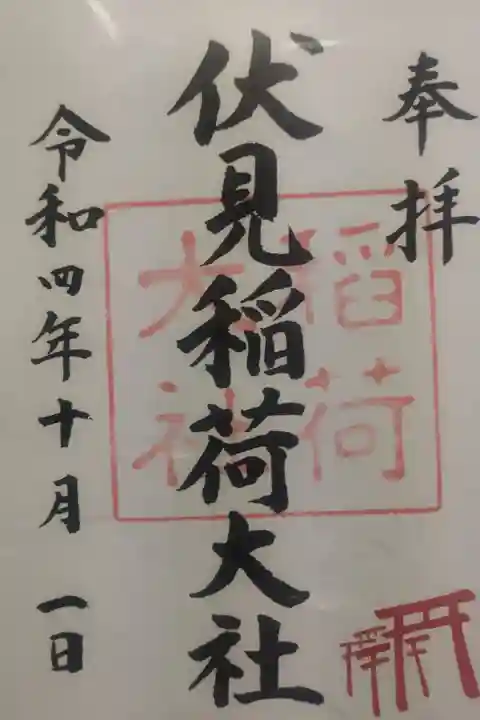 奉拝
伏見稲荷大社
令和四年十月一日
稲荷
大社